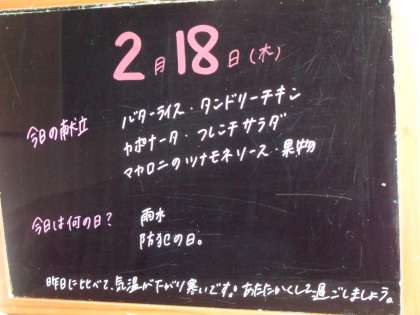 2月18日(木)
今日の献立
バターライス・タンドリーチキン
カポナータ・フレンチサラダ
マカロニのツナモネソース・果物
今日は何の日?
雨水
防犯の日。
昨日に比べて、気温が下がり寒いです。あたたかくして過ごしましょう。